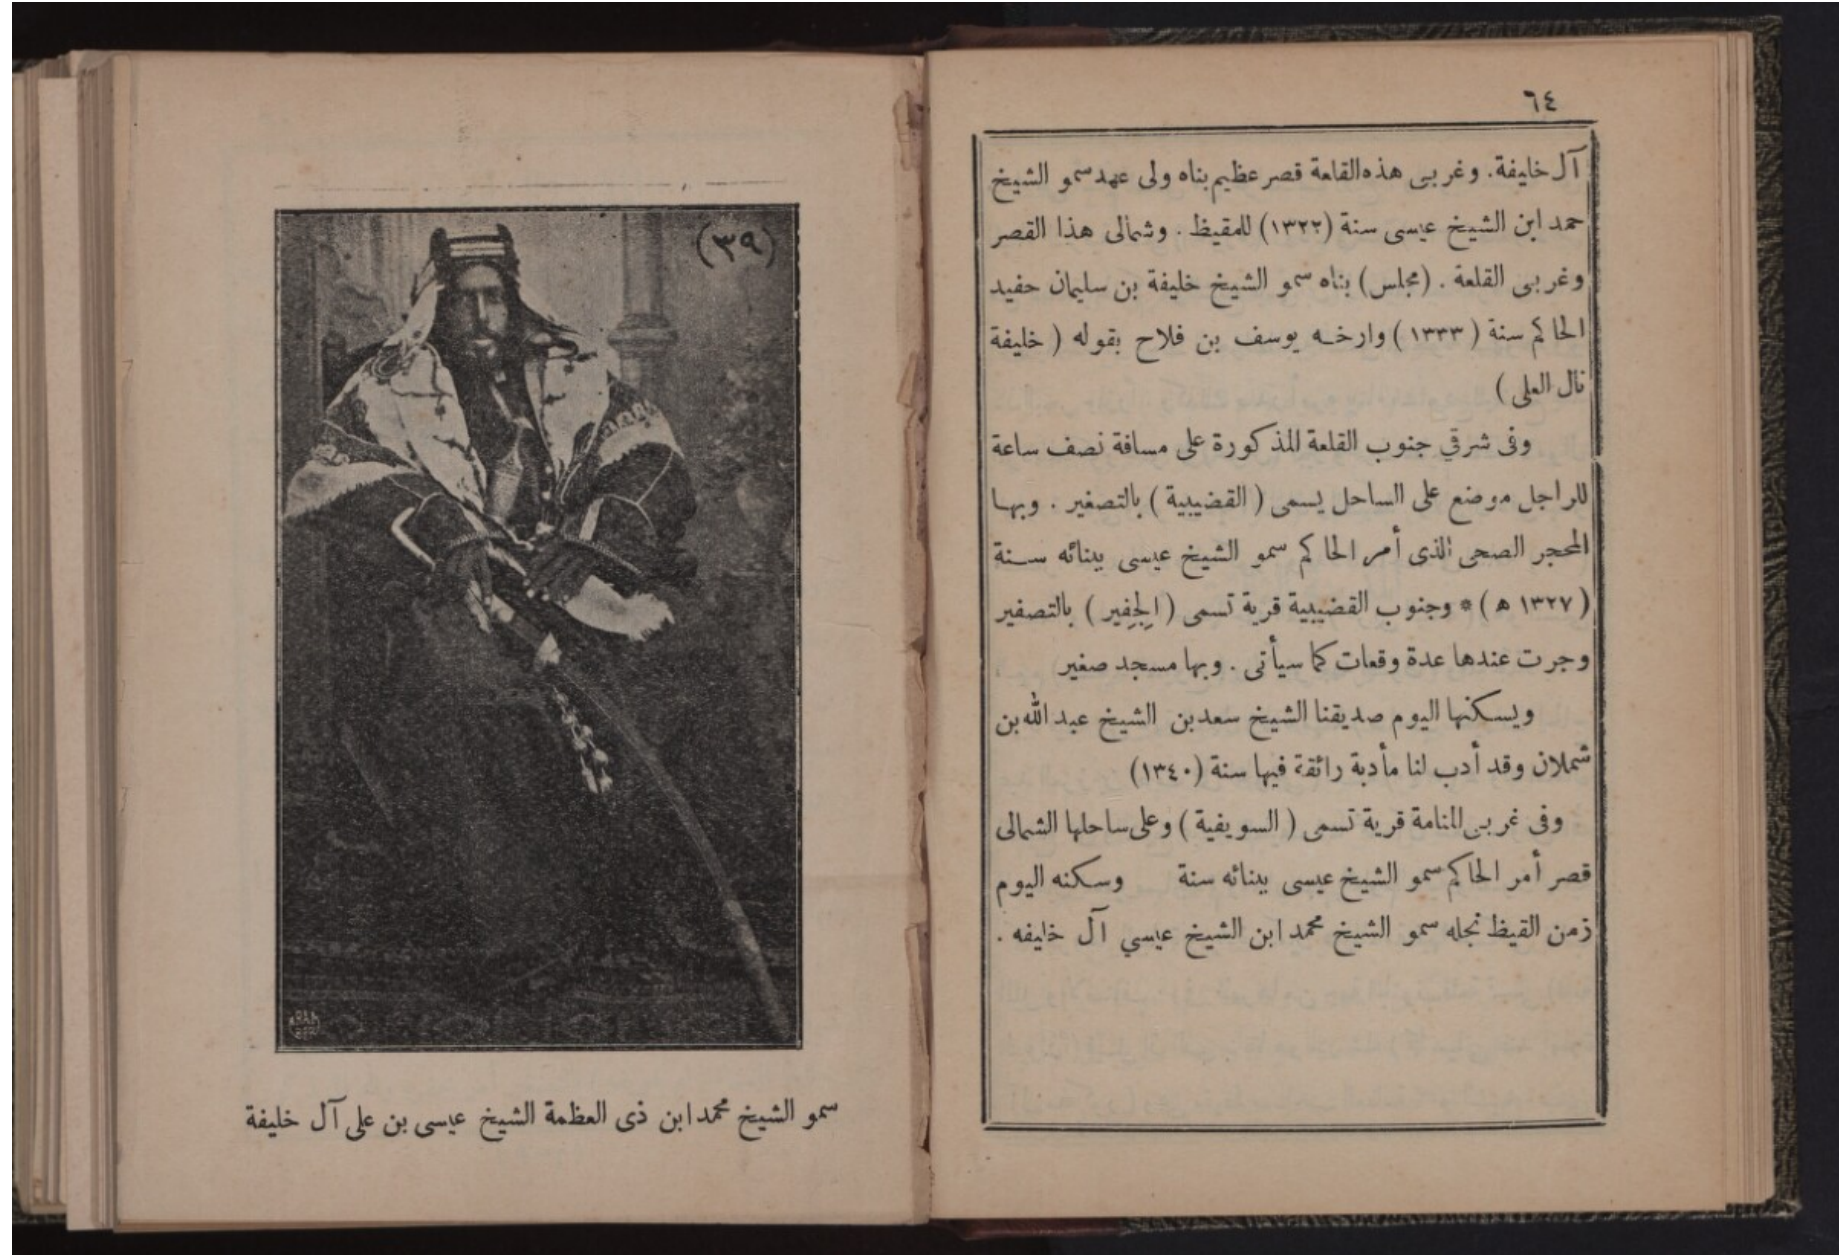 ٦٤
آل خليفة. وغربى هذه القلعة قصر عظيم بناه ولى عهد سمو الشيخ
حمد ابن الشيخ عيسى سنة (١٣٢٢) للمقيظ. وشمالى هذا القصر
وغربى القلعة. (مجلس) بناه سمو الشيخ خليفة بن سليمان حفيد
الحاكم سنة (١٣٣٣) وارخه يوسف بن فلاح بقوله (خليفة
نال العلى)
وفى شرقي جنوب القلعة المذكورة على مسافة نصف ساعة
للراجل موضع على الساحل يسمى (القضيبية) بالتصغير. وبها
المحجر الصحى الذى أمر الحاكم سمو الشيخ عيسى ببنائه سنة
(١٣٢٧ ه) * وجنوب القضيبية قرية تسمى (الجِفِير) بالتصفير
وجرت عندها عدة وقعات كما سيأتى. وبها مسجد صغير
ويسكنها اليوم صديقنا الشيخ سعد بن الشيخ عبد الله بن
شملان وقد أدب لنا مأدبة رائقة فيها سنة (١٣٤٠)
وفى غربى المنامة قرية تسمى (السويفية) وعلى ساحلها الشمالى
قصر أمر الحاكم سمو الشيخ عيسى ببنائه سنة وسكنه اليوم
زمن القيظ نجله سمو الشيخ محمد ابن الشيخ عيسي آل خليفه.
(٣٩)
سمو الشيخ محمد ابن ذى العظمة الشيخ عيسى بن على آل خليفة